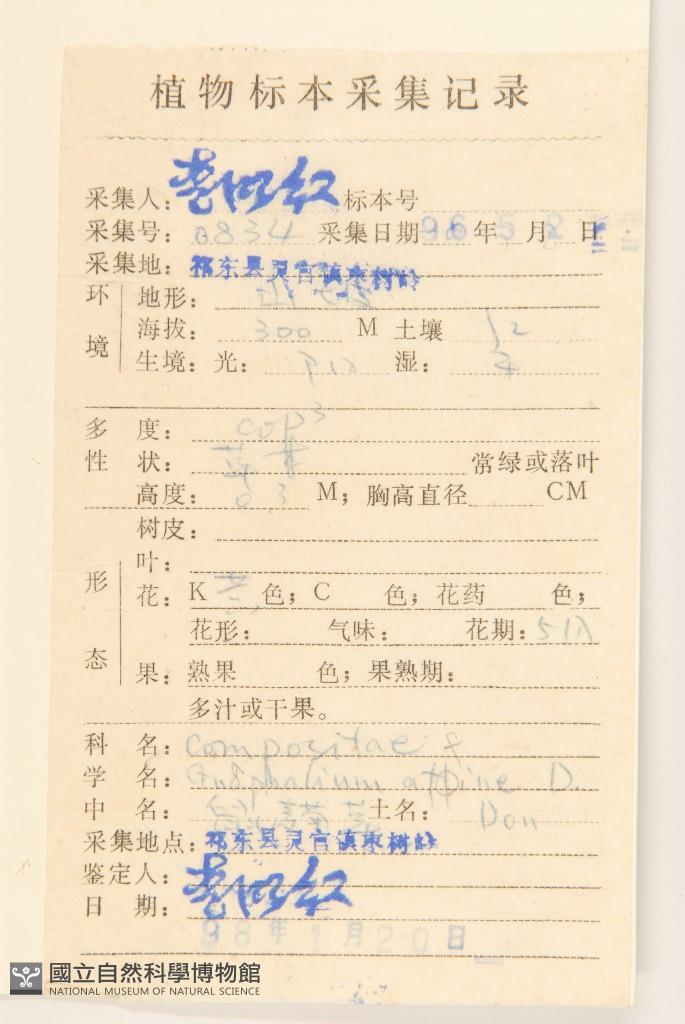 植物标本采集记录
采集人： 标本号
采集号：0834 采集日期 96年5月2日
采集地：祁东县灵官镇枣树岭
环境
地形：
海拔：300 M 土壤
生境：光： 湿：
多度：cop3
性状：草本 常绿或落叶
高度：0.3 M；胸高直径 CM
形态
树皮：
叶：
花：K 黄 色；C 色；花药 色；
花形： 气味： 花期：5月
果：熟果 色；果熟期：
多汁或干果。
科名：Compositae
学名：Gnaphalium affine D.
中名： 土名： Don
采集地点：祁东县灵官镇枣树岭
鉴定人：
日期：98年1月20日
國立自然科學博物館
NATIONAL MUSEUM OF NATURAL SCIENCE